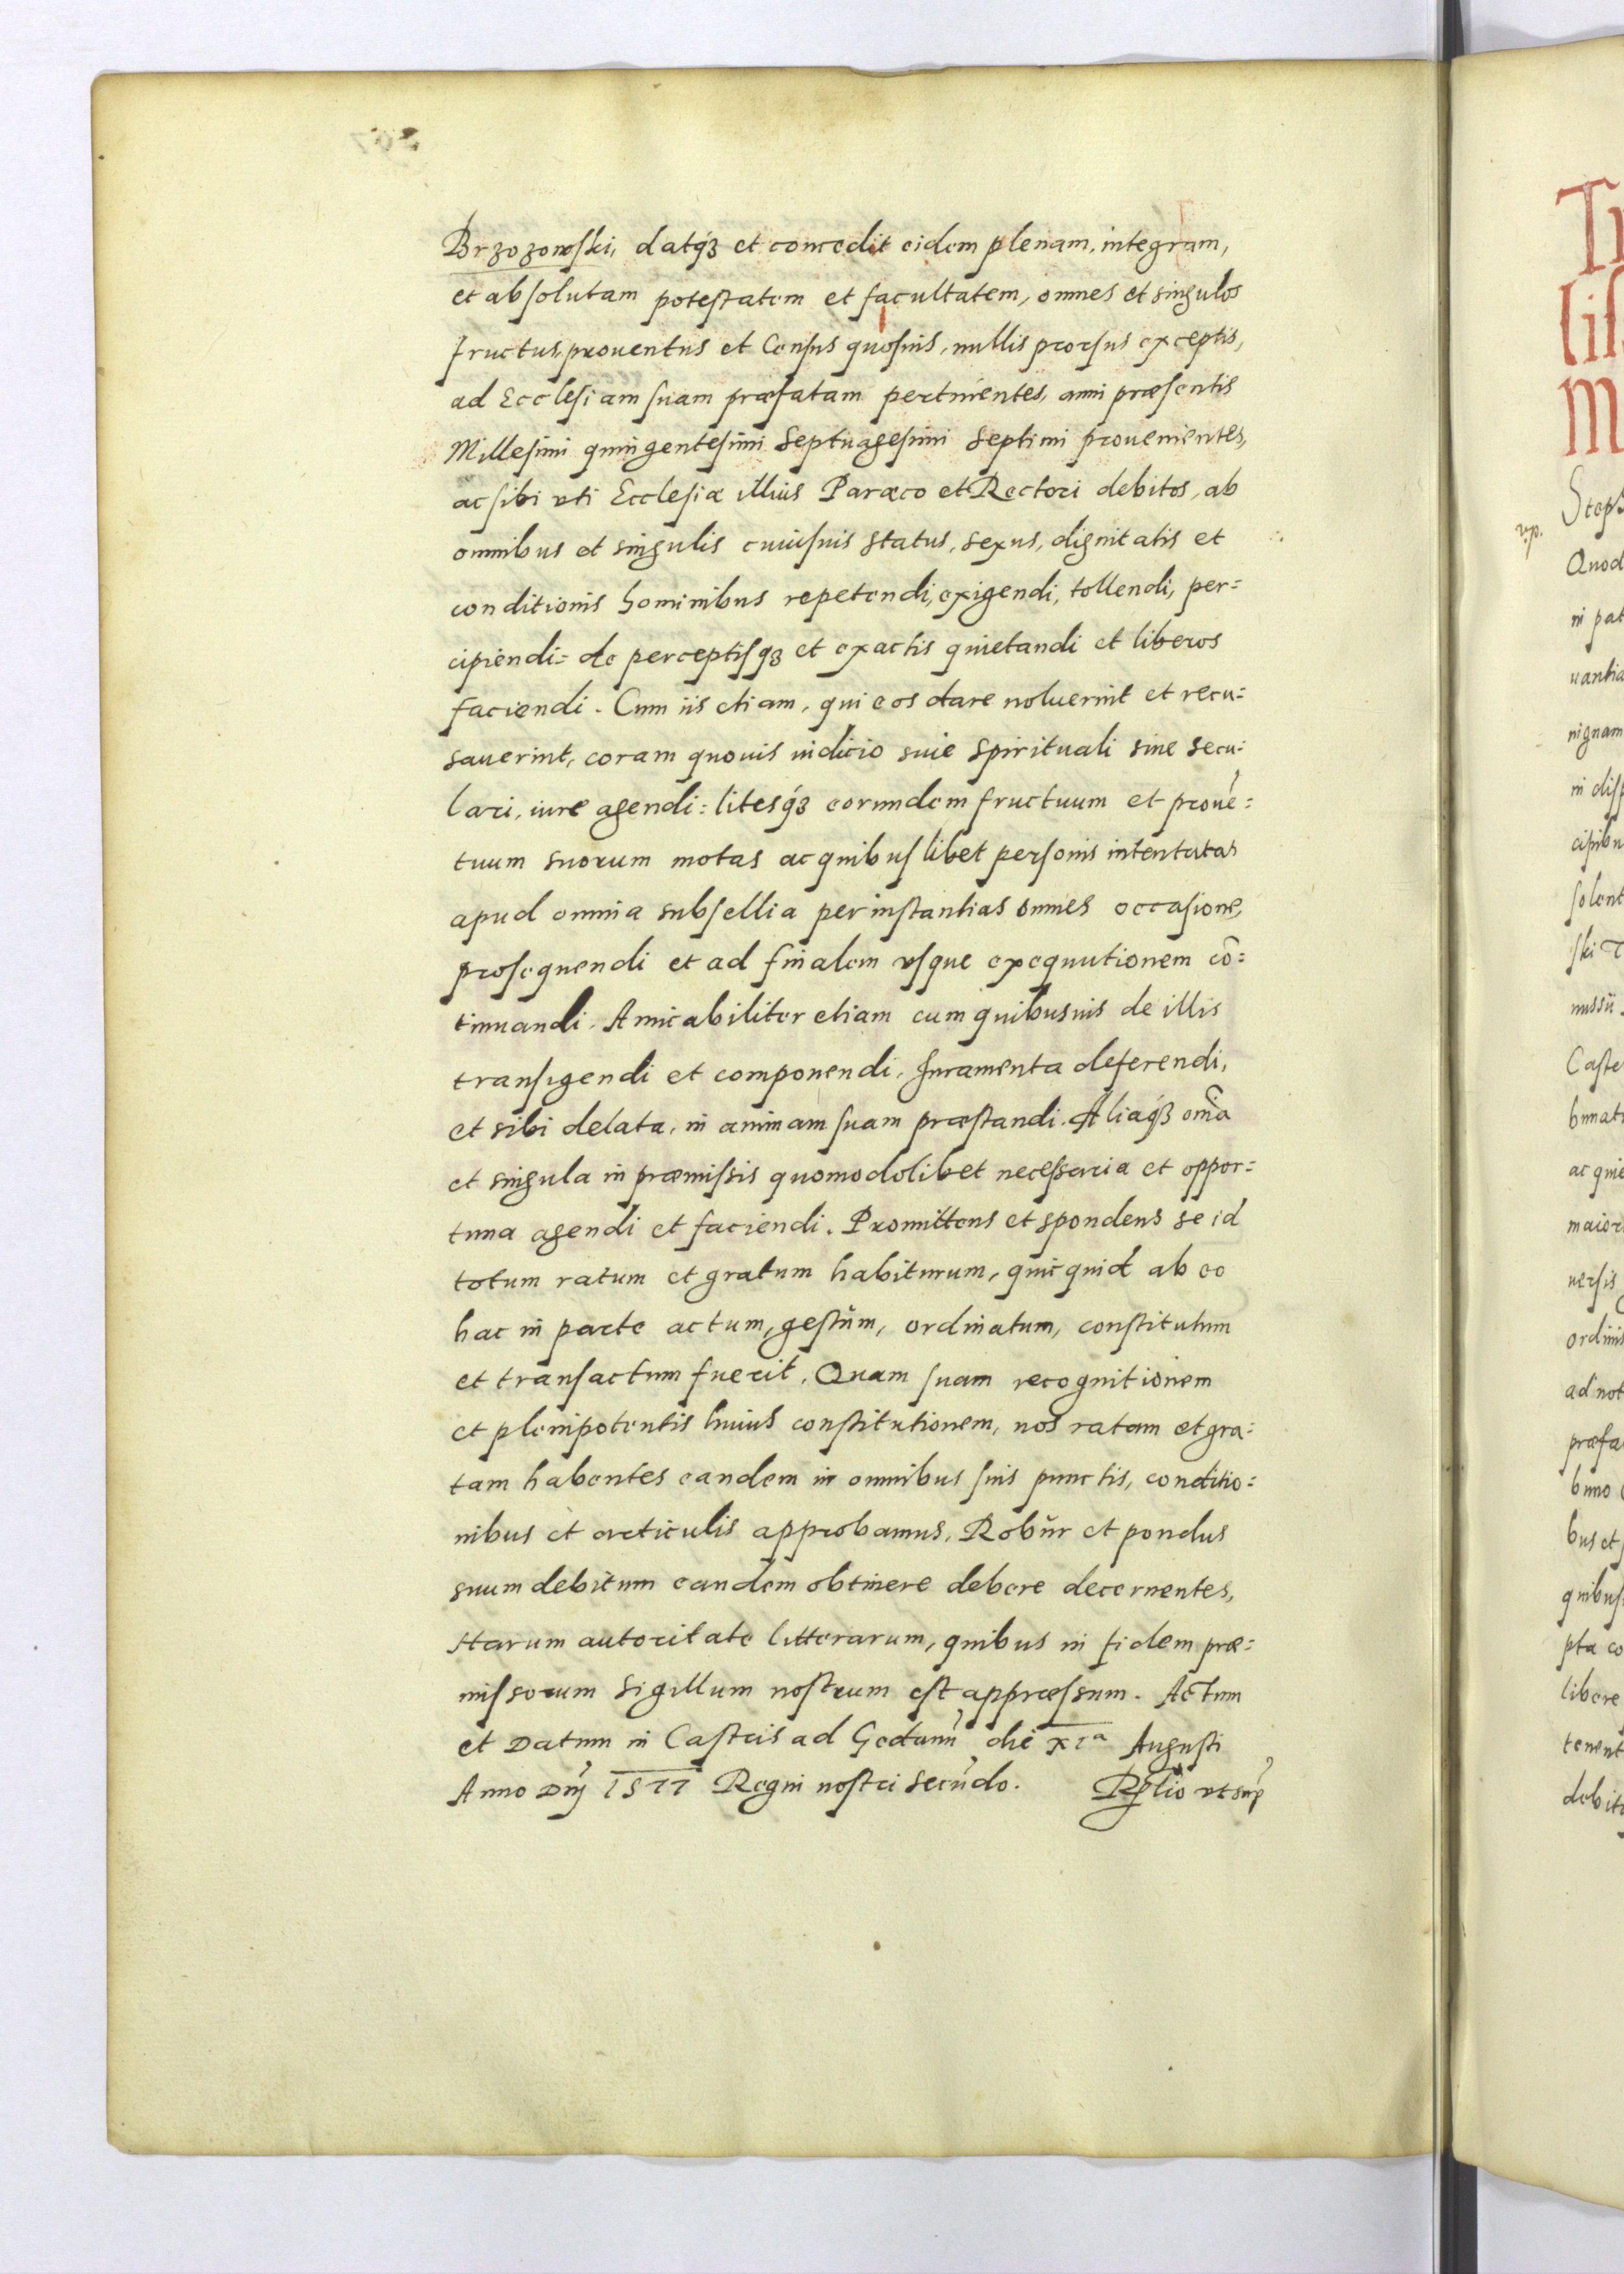 Brzozowski, datq́ꝫ et concedit eidem plenam, integram,
et absolutam potestatem et facultatem, omnes et singulos
fructus, prouentus et Census quosuis, nullis prorsus exceptis,
ad Ecclesiam suam præfatam pertinentes, anni præsentis
Millesimi quingentesimi Septuagesimi Septimi prouenientes,
ac sibi vti Ecclesiæ illius Paræco et Rectori debitos, ab
omnibus et singulis cuiusuis status, sexus, dignitatis et
conditionis hominibus repetendi, exigendi, tollendi, per=
cipiendi= de perceptisqꝫ et exactis quietandi et liberos
faciendi. Cum iis etiam, qui eos dare noluerint et recu=
sauerint, coram quouis iudicio siue Spirituali siue Secu=
lari, iure agendi: litesq́ꝫ eorundem fructuum et prouē=
tuum suorum motas ac quibuslibet personis intentatas
apud omnia subsellia per instantias omnes occasione,
prosequendi et ad finalem vsque exequutionem cō=
tinuandi. Amicabiliter etiam cum quibusuis de illis
transigendi et componendi. Juramenta deferendi,
et sibi delata, in animam suam præstandi. Aliaq́ꝫ om̄ia
et singula in præmissis quomodolibet necessaria et oppor=
tuna agendi et faciendi. Promittens et spondens se id
totum ratum et gratum habiturum, quicquid ab eo
hac in parte actum, gestum, ordinatum, constitutum
et transactum fuerit. Quam suam recognitionem
et plenipotentis huius constitutionem, nos ratam et gra=
tam habentes eandem in omnibus suis punctis, conditio=
nibus et articulis approbamus, Robur et pondus
suum debitum eandem obtinere debere decernentes,
Harum autoritate litterarum, quibus in fidem præ=
missorum Sigillum nostrum est appræssum. Actum
et Datum in Castris ad Gedanū die XIa Augusti
Anno Dnj 1577 Regni nostri secundo. Rƺlio vt sup̄